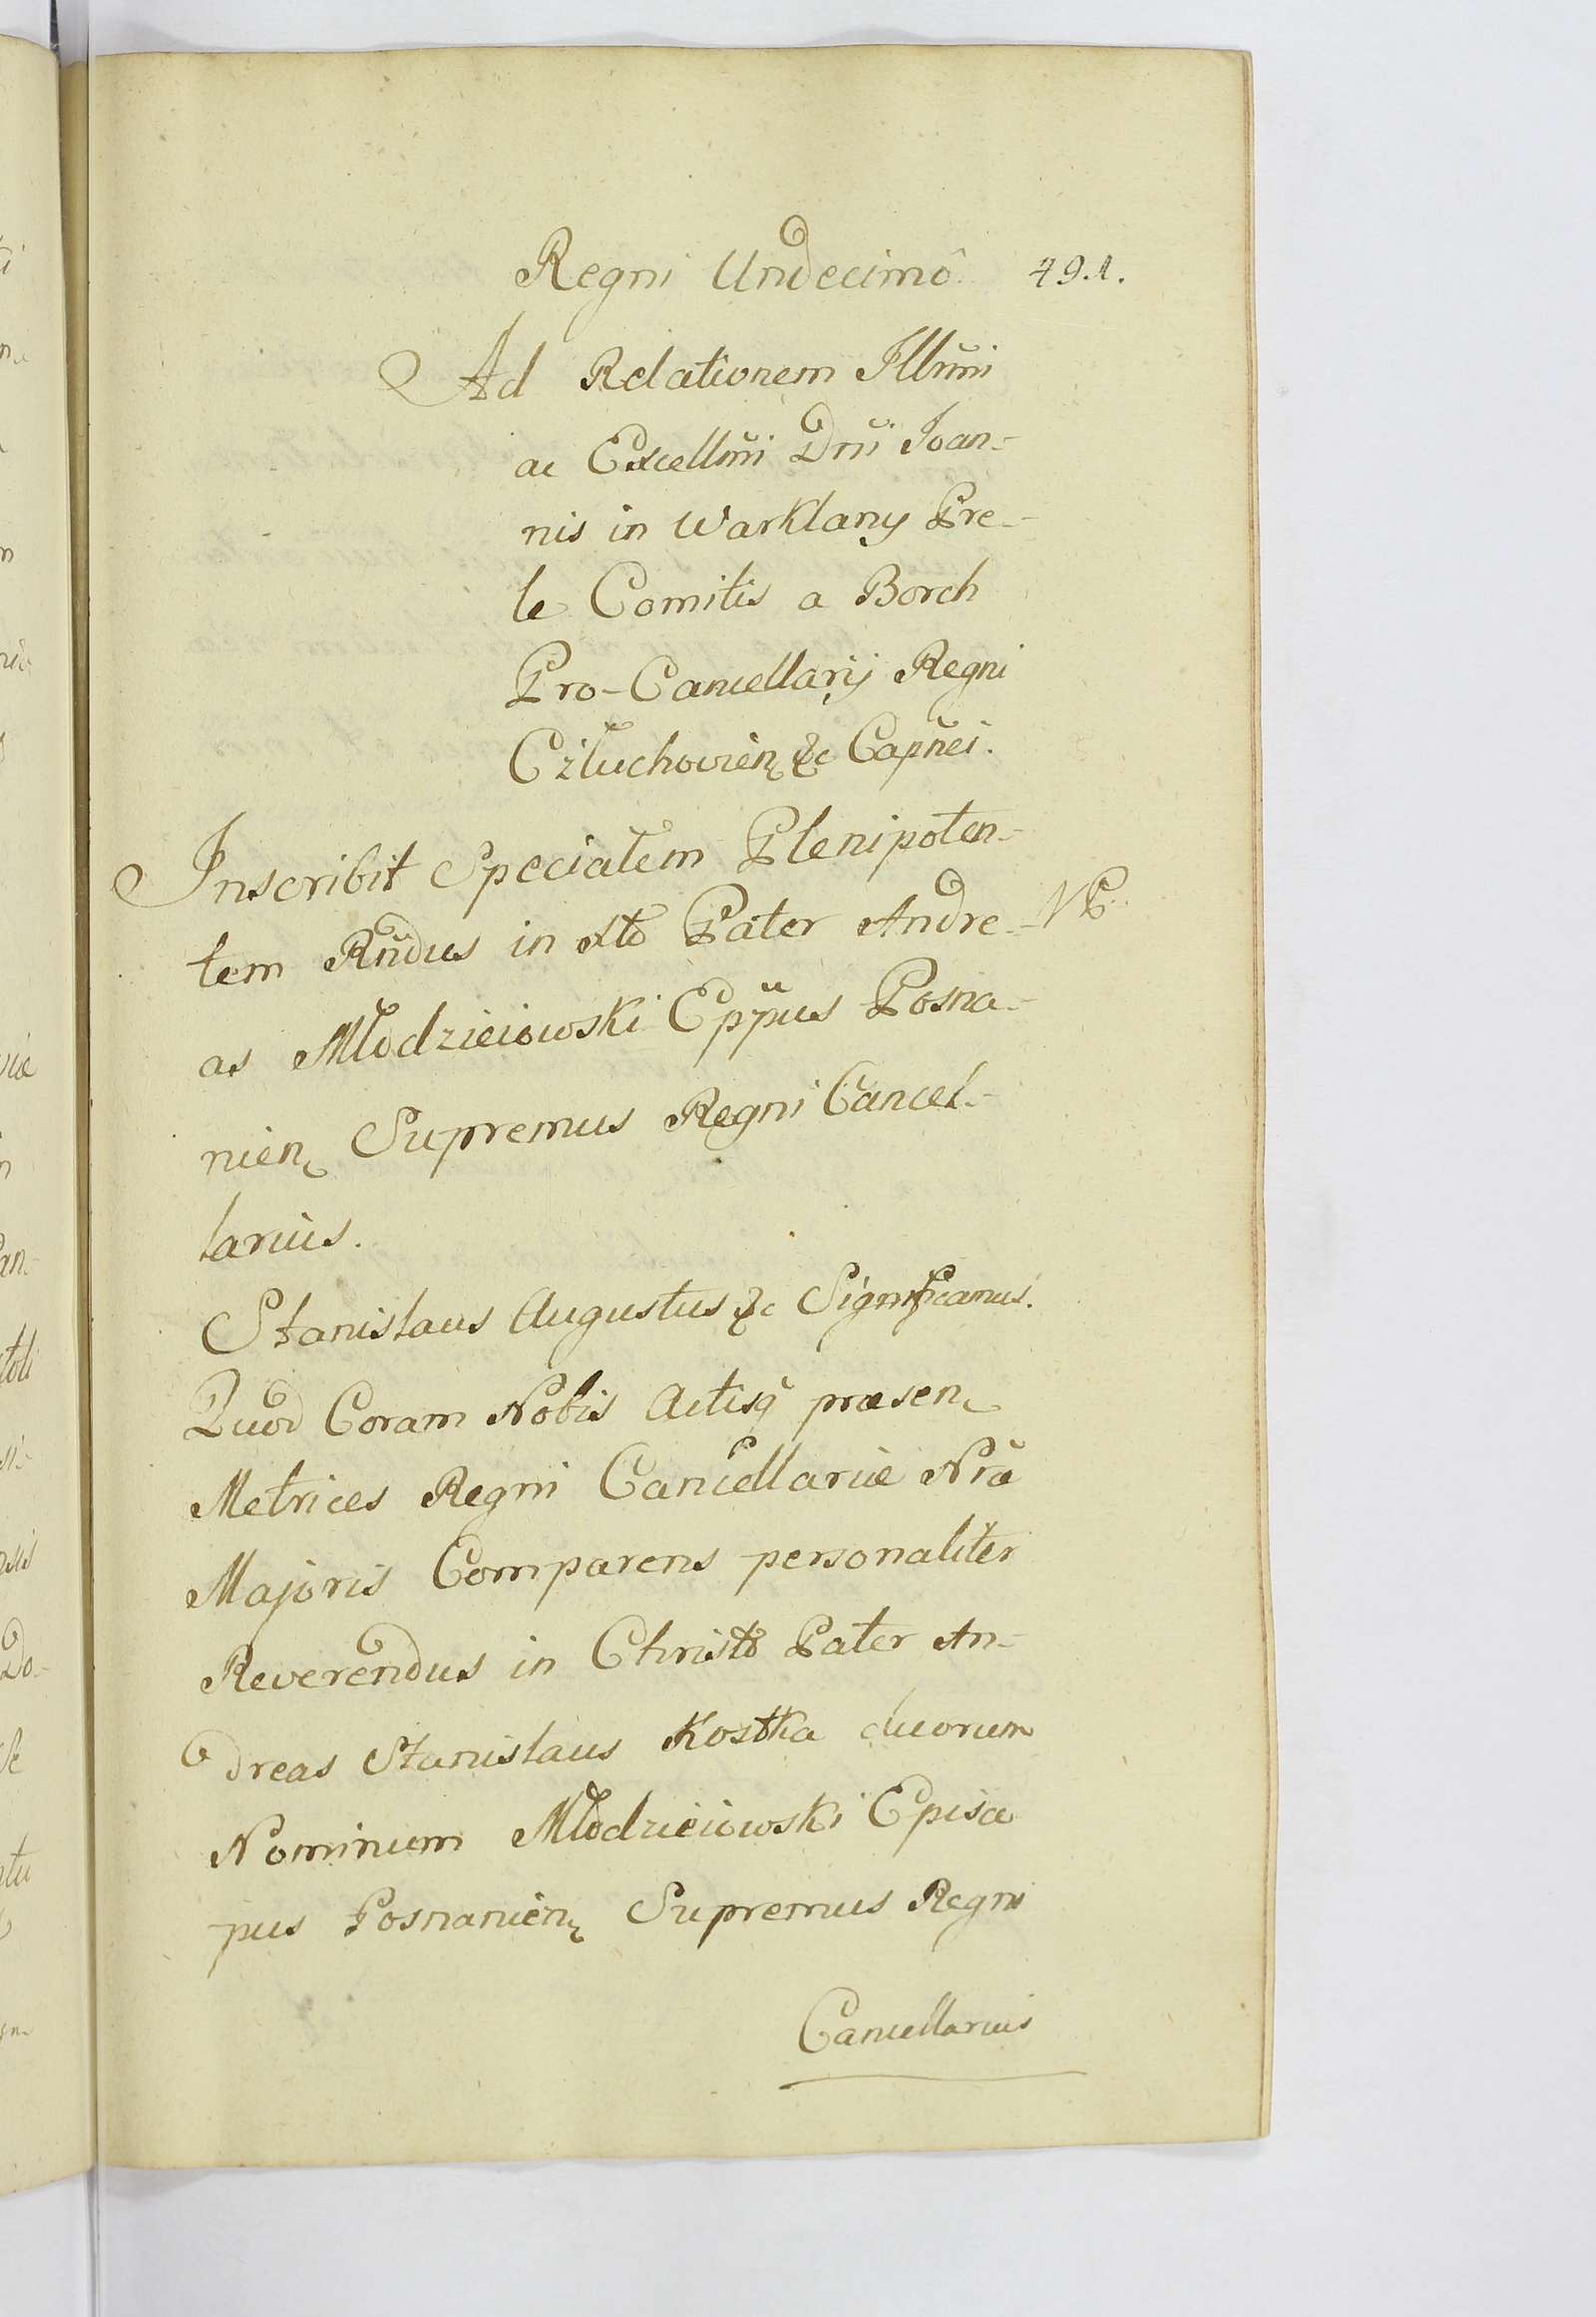 Regni Undecimô 491.
Ad Relationem Illm̃i
ac Excellm̃i Dñi Joan-
nis in Warklany Pre-
le Comitis a Borch
Pro-Cancellarij Regni
Człuchovien &c Capñei.
Inscribit Specialem Plenipoten-
tem Rñdus in Xto Pater Andre-
as Młodzieiowski Epp̃us Posna-
nien Supremus Regni Cancel-
larius.
Stanislaus Augustus &c Significamus.
Quod Coram Nobis Actisq̃ præsen
Metrices Regni Cancellariæ Nræ
Majoris Comparens personaliter
Reverendus in Christo Pater An-
dreas Stanislaus Kostka duorum
Nominum Młodzieiowski Episco
pus Posnanien Supremus Regni
Cancellarius